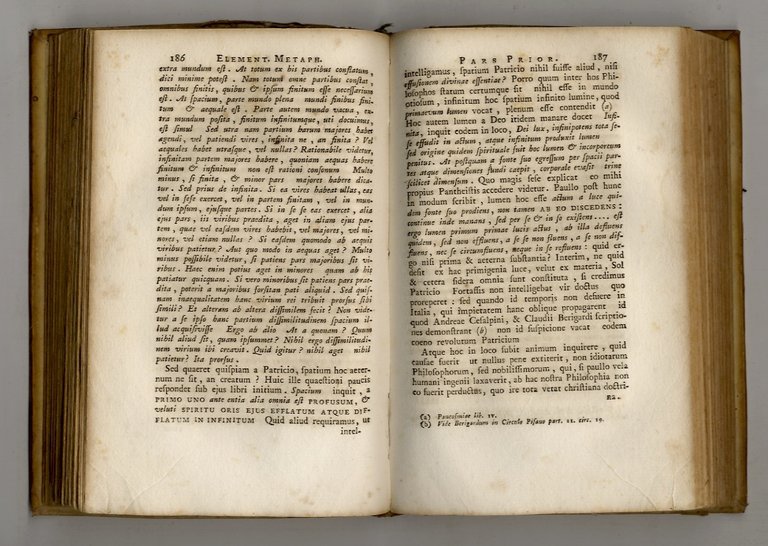 186 ELEMENT. METAPH.
extra mundum est. At totum ex his partibus conflatum,
dici minime potest. Nam totum omne partibus constat,
omnibus finitis, quibus & ipsum finitum esse necessarium
est. At spacium, parte mundo plena mundi finibus fini-
tum & aequale est. Parte autem mundo vacua, ex-
tra mundum posita, finitum infinitumque, uti docuimus,
est simul Sed utra nam partium harum majores habet
agendi, vel patiendi vires, infinita ne, an finita? Vel
aequales habet utraque, vel nullas? Rationabile videtur,
infinitam partem majores habere, quoniam aequas habere
finitum & infinitum non est rationi consonum Multo
minus, si finita, & minor pars majores habere dica-
tur. Sed prius de infinita. Si ea vires habeat ullas, eas
vel in sese exercet, vel in partem finitam, vel in mun-
dum ipsum, ejusque partes. Si in se se eas exercet, alia
ejus pars, iis viribus praedita, aget in aliam ejus par-
tem, quae vel easdem vires habebit, vel majores, vel mi-
nores, vel etiam nullas? Si easdem quomodo ab aequis
viribus patietur? Aut quo modo in aequas aget? Multo
minus possibile videtur, si patiens pars majoribus sit vi-
ribus. Haec enim potius aget in minores quam ab his
patiatur quicquam. Si vero minoribus sit patiens pars prae-
dita, poterit a majoribus forsitan pati aliquid. Sed quis-
nam inaequalitatem hanc virium rei tribuit prorsus sibi
simili? Et alteram ab altera dissimilem fecit? Non vide-
tur a se ipso hanc partium dissimilitudinem spacium il-
lud acquisivisse Ergo ab alio At a quonam? Quum
nihil aliud sit, quam ipsummet? Nihil ergo dissimilitudi-
nem virium ibi creavit. Quid igitur? nihil aget nihil
patietur? Ita prorsus.
Sed quaeret quispiam a Patricio, spatium hoc aeter-
num ne sit, an creatum? Huic ille quaestioni paucis
respondet sub ejus libri initium. Spacium inquit, a
PRIMO UNO ante entia alia omnia est PROFUSUM, &
veluti SPIRITU ORIS EJUS EFFLATUM ATQUE DIF-
FLATUM IN INFINITUM Quid aliud requiramus, ut
intel-
PARS PRIOR. 187
intelligamus, spatium Patricio nihil fuisse aliud, nisi
effusionem divinae essentiae? Porro quum inter hos Phi-
losophos statum certumque sit nihil esse in mundo
otiosum, infinitum hoc spatium infinito lumine, quod
primaevum lumen vocat, plenum esse contendit (a)
Hoc autem lumen a Deo itidem manare docet Infi-
nita, inquit eodem in loco, Dei lux, infinipotens tota se-
se effudit in actum, atque infinitum produxit lumen
sed origine quidem spirituale fuit hoc lumen & incorporeum
penitus. At postquam a fonte suo egressum per spacii par-
tes atque dimensiones fundi caepit, corporale evasit trine
scilicet dimensum. Quo magis sese explicat eo mihi
propius Pantheistis accedere videtur. Paullo post hunc
in modum scribit, lumen hoc esse actum a luce qui-
dem fonte suo prodiens, non tamen AB EO DISCEDENS:
continue inde manans, sed per se & in se existens.... est
ergo lumen primum primae lucis actus, ab illa defluens
quidem, sed non effluens, a se se non fluens, a se non dif-
fluens, nec se circumfluens, neque in se refluens: quid er-
go nisi prima & aeterna substantia? Interim, ne quid
desit ex hac primigenia luce, velut ex materia, Sol
& cetera sidera omnia sunt constituta, si credimus
Patricio Fortassis non intelligebat vir doctus quo
propereret: sed quando id temporis non defuere in
Italia, qui impietatem hanc oblique propagarent id
quod Andreae Cesalpini, & Claudii Berigardi scriptio-
nes demonstrant (b) non id suspicione vacat eodem
coeno revolutum Patricium
Atque hoc in loco subit animum inquirere, quid
causae fuerit ut nullus pene extiterit, non idiotarum
Philosophorum, sed nobilissimorum, qui, si paullo vela
humani ingenii laxaverit, ab hac nostra Philosophia non
eo fuerit perductus, quo ire tota vetat christiana doctri-
na.
(a) Pancosmiae lib. IV.
(b) Vide Berigardum in Circulo Pisano part. II. circ. 19.